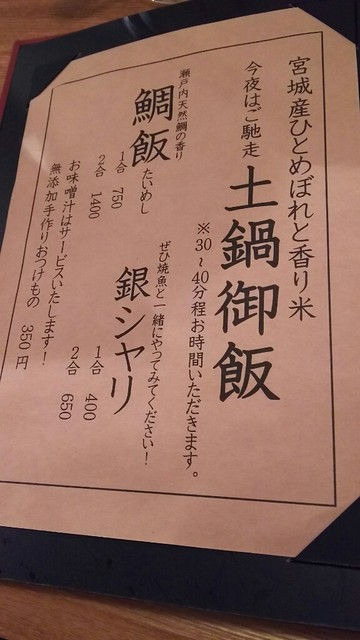 宮城産ひとめぼれと香り米
今夜はご馳走 土鍋御飯
※30～40分程お時間いただきます。
瀬戸内天然鯛の香り
鯛飯 たいめし
1合 750
2合 1400
ぜひ焼魚と一緒にやってみてください！
銀シャリ
1合 400
2合 650
お味噌汁はサービスいたします！
無添加手作りおつけもの 350円